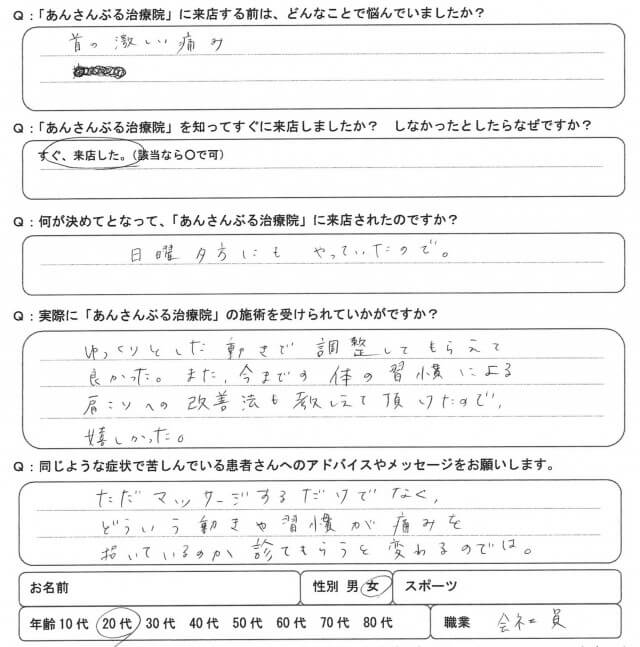 Q：「あんさんぶる治療院」に来店する前は、どんなことで悩んでいましたか？
首の激しい痛み
Q：「あんさんぶる治療院」を知ってすぐに来店しましたか？　しなかったとしたらなぜですか？
すぐ、来店した。（該当なら〇で可）
Q：何が決めてとなって、「あんさんぶる治療院」に来店されたのですか？
日曜夕方にも やっていたので。
Q：実際に「あんさんぶる治療院」の施術を受けられていかがですか？
ゆっくりとした動きで調整してもらえて
良かった。また、今までの体の習慣による
肩こりへの改善法も教えて頂けたので、
嬉しかった。
Q：同じような症状で苦しんでいる患者さんへのアドバイスやメッセージをお願いします。
ただマッサージするだけでなく、
どういう動きや習慣が痛みを
招いているのか診てもらうと変わるのでは。
お名前　性別 男 女　スポーツ
年齢 10代 20代 30代 40代 50代 60代 70代 80代　職業　会社員